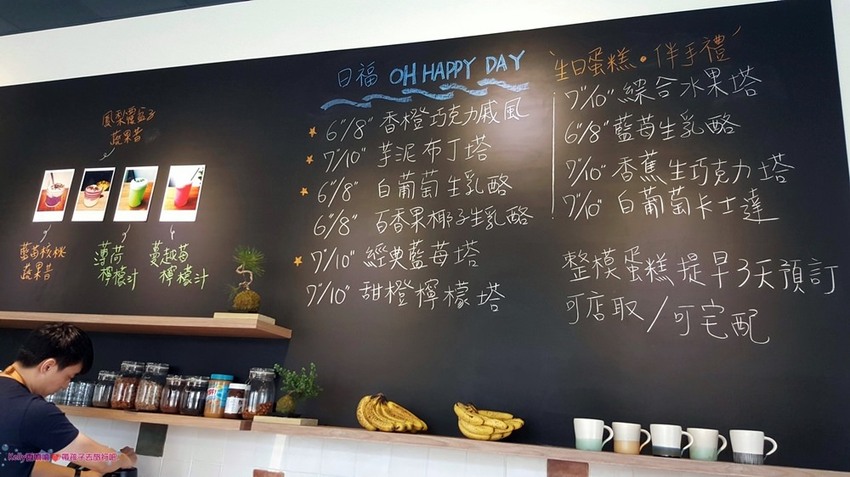 鳳梨覆盆子
蔬果昔
藍莓核桃
蔬果昔
薄荷
檸檬汁
蔓越莓
檸檬汁
日福 OH HAPPY DAY
6"/8" 香橙巧克力戚風
7"/10" 芋泥布丁塔
6"/8" 白葡萄生乳酪
6"/8" 百香果椰子生乳酪
7"/10" 經典藍莓塔
7"/10" 甜橙檸檬塔
生日蛋糕·伴手禮
7"/10" 綜合水果塔
6"/8" 藍莓生乳酪
7"/10" 香蕉生巧克力塔
7"/10" 白葡萄卡士達
整模蛋糕提早3天預訂
可店取/可宅配